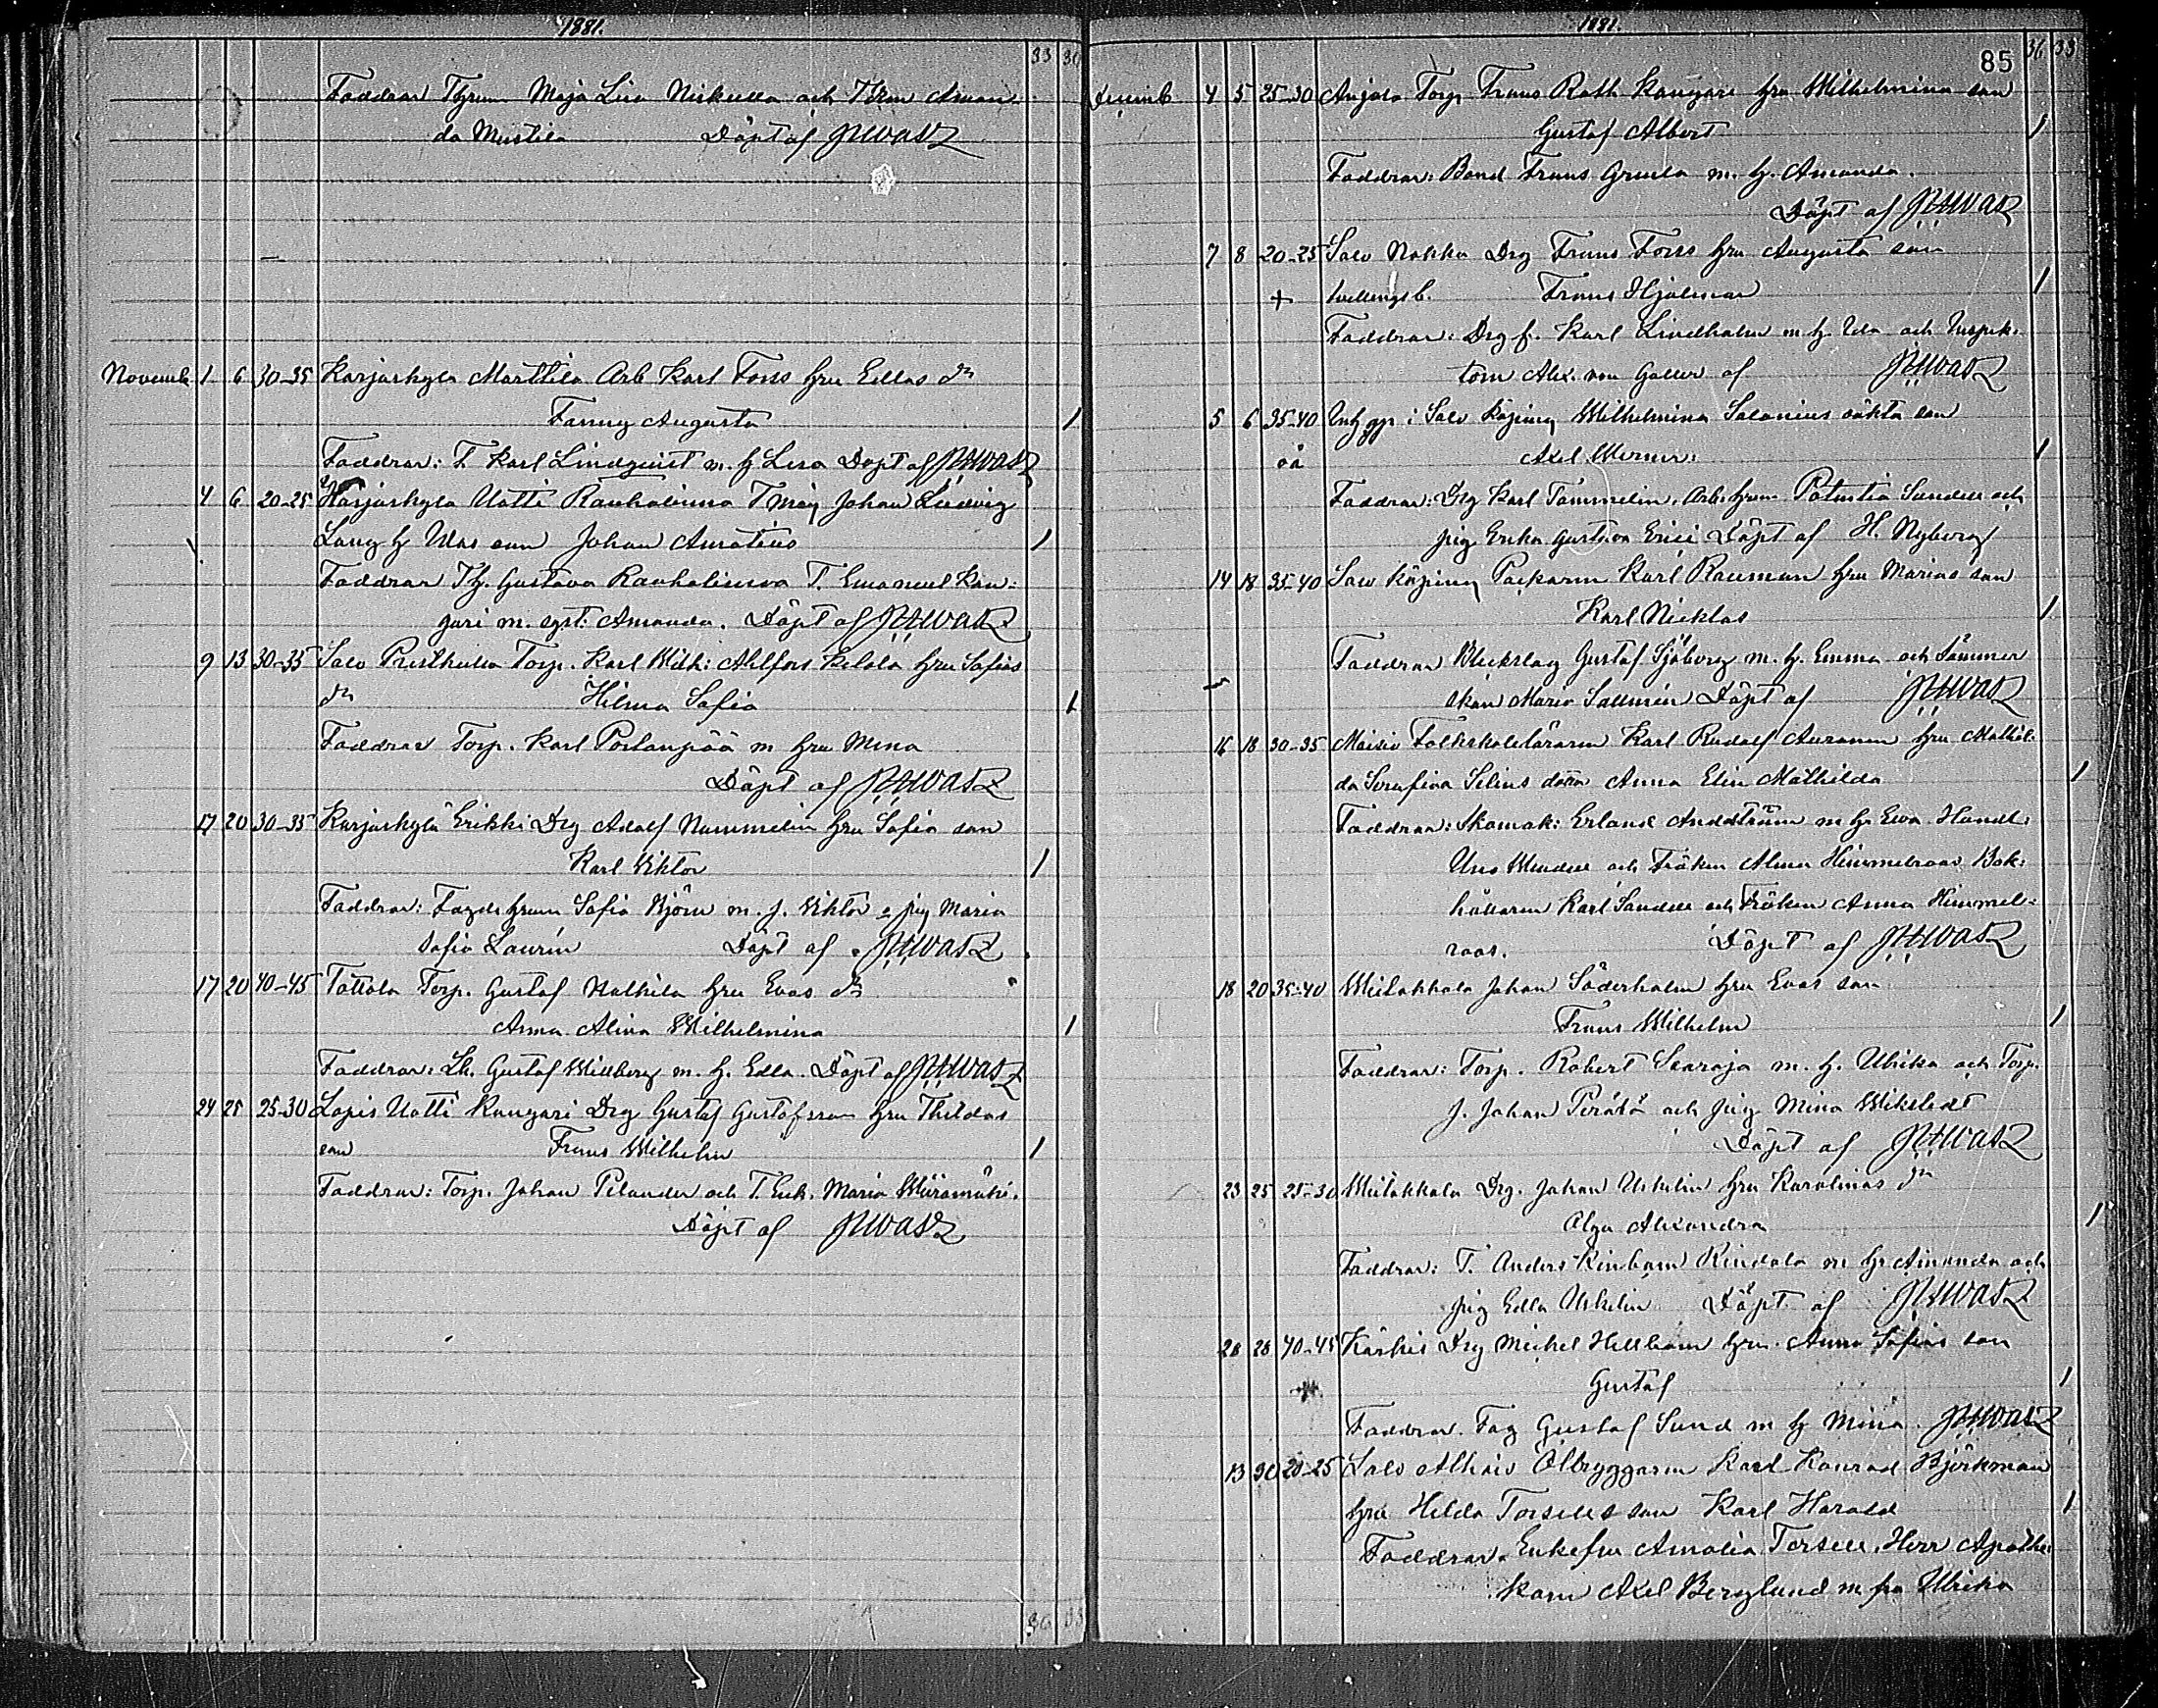 1881.
33 30
Faddrar Thrum Maja Lisa Niskulla och Thrm Aman
da Mustila Döpt af
Novemb 1 6 30-35 Karjaskylä Marttila Arb Karl Forss hru Eddas dr
Fanny Augusta 1
Faddrar: T. Karl Lindqvist m. h Lisa Döpt af
4 6 20-25 Karjaskylä Uotti Rauhalinna T måg Johan Ludvig
Lang h Idas son Johan Amatius 1
Faddrar Th. Gustava Rauhalinna T. Emanuel Kan:
gari m. syst: Amanda. Döpt af
9 13 30-35 Salo Prestkulla Torp. Karl Wilh: Ahlfors Kelola hru Sofias
dr Hilma Sofia 1
Faddrar Torp. Karl Porlanpää m hru Mina
Döpt af
17 20 30-35 Karjaskylä Erikki Drg Adolf Nummelin hru Sofia son
Karl Viktor 1
Faddrar: hrum Sofia Björn m. J. Viktor o pig Maria
Sofia Laurén Döpt af
17 20 40-45 Tottola Torp. Gustaf Uotkila hru Evas dr
Anna Alina Wilhelmina 1
Faddrar: Lk. Gustaf Willberg m. h. Edla. Döpt af
24 25 25-30 Lapis Uotti Kangari Drg Gustaf Gustafsson hru Thildas
son Frans Wilhelm 1
Faddrar: Torp. Johan Pelander och T. Enk. Maria Wiiramäki.
Döpt af
36 33
1881.
85 36 33
Decemb 4 5 25-30 Anjala Torp Frans Roth Kangari hru Wilhelmina son
Gustaf Albert 1
Faddrar: Bond Frans Gruula m. h. Amanda.
Döpt af
7 8 20-25 Salo Nokka Drg Frans Forss hru Augusta son
+ tvillingsb. Frans Hjalmar 1
Faddrar: Drg f. Karl Lindholm m h. Ida och Inspek.
torn Alex. von Galler af
5 6 35-40 Inh pp i Salo Köping Wilhelmina Salonius oäkta son
oä Axel Werner: 1
Faddrar: Drg Karl Tammelin, Arb. hrum Potentia Sandell och
pig Erika Gustava Erici Döpt af H. Nyberg
14 18 35-40 Salo Köping Packarn Karl Rauman hru Marias son
Karl Nicklas 1
Faddrar Bleckslag Gustaf Sjöberg m. h. Emma och Sömmer
skan Maria Sallmén Döpt af
16 18 30-35 Moisio Folkskolelärarn Karl Rudolf Auranen hru Mathil:
da Serafina Silius dotr Anna Elin Mathilda 1
Faddrar: Skomak: Erland Anddtröm m h. Ewa Handl:
Uno Windell och Fröken Alma Himmelroos Bok:
hållarn Karl Sandell och Fröken Anna Himmel:
roos. Döpt af
18 20 35-40 Wiitakkala Johan Söderholm hru Evas son
Frans Wilhelm 1
Faddrar: Torp. Robert Seoraja m. h. Ulrika och Torp.
J. Johan Perätä och pig Mina Wikstedt
Döpt af
23 25 25-30 Wiitakkala Drg. Johan Uskelin hru Karolinas dr
Olga Alexandra 1
Faddrar: T. Anders Rinbom Rindala m h Amanda och
pig Edla Uskelin Döpt af
28 28 40-45 Kärkis Drg Mickel Hellbom hru Anna Sofias son
Gustaf 1
Faddrar. Tag Gustaf Sund m h Mina
13 30 20-25 Salo Alhais Ölbryggarn Karl Konrad Björkman
hru Hilda Torsells son Karl Harald 1
Faddrar. Enkefru Amalia Torsell, Herr Apothe:
karn Axel Berglund m fru Ulrika